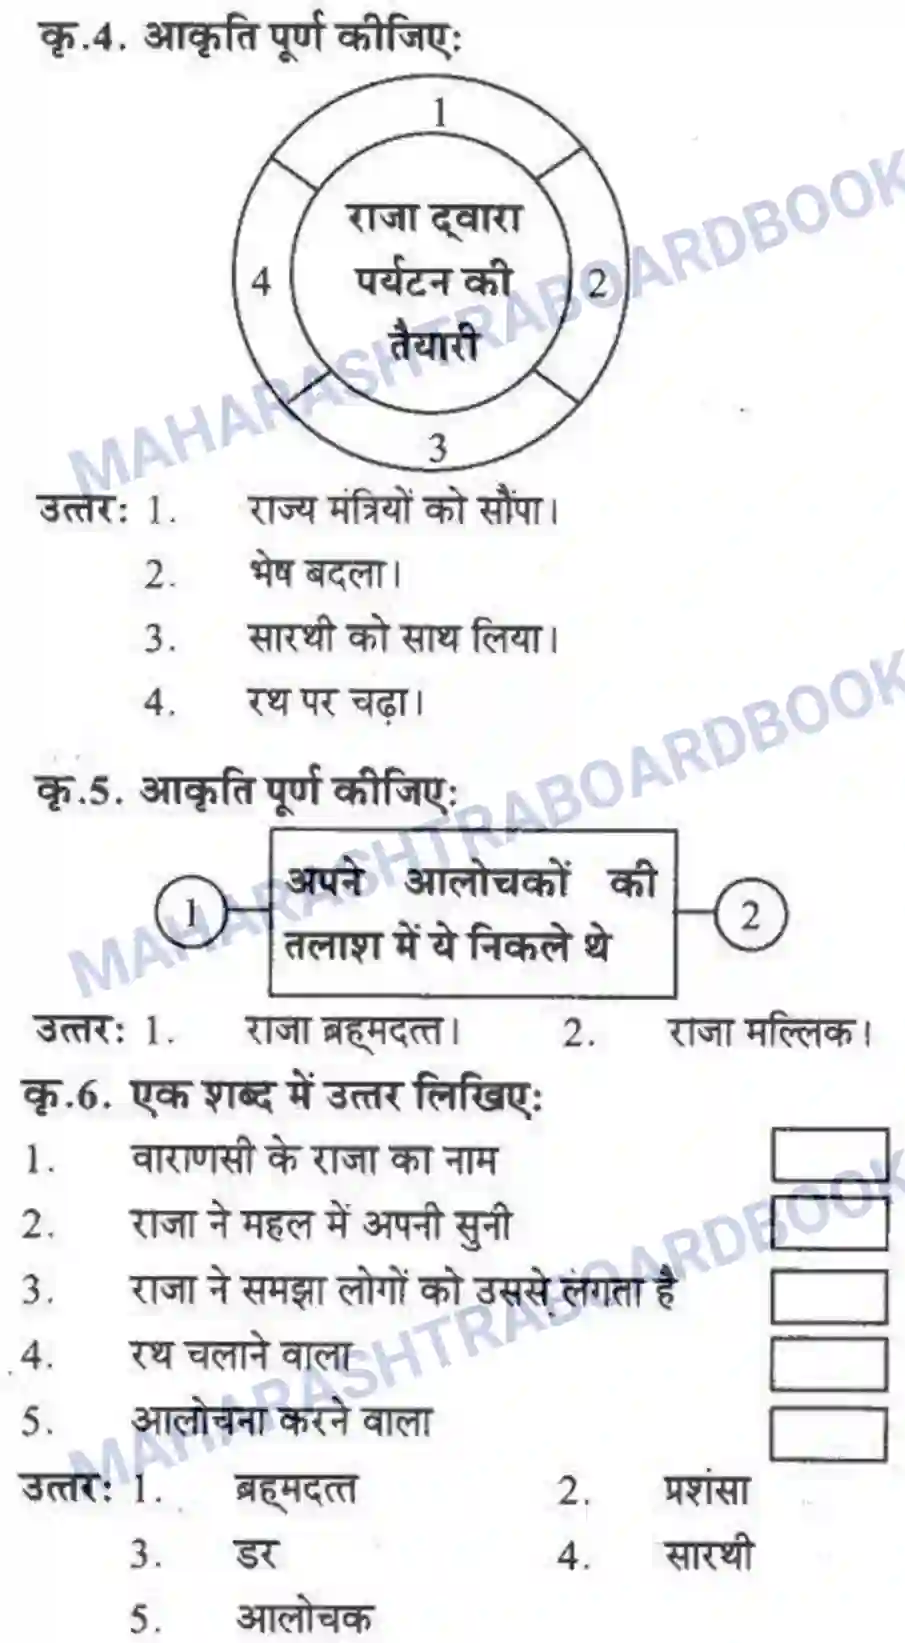 कृ.4. आकृति पूर्ण कीजिए:
1
राजा द्वारा
पर्यटन की
तैयारी
4
2
3
उत्तर: 1. राज्य मंत्रियों को सौंपा।
2. भेष बदला।
3. सारथी को साथ लिया।
4. रथ पर चढ़ा।
कृ.5. आकृति पूर्ण कीजिए:
1
अपने आलोचकों की
तलाश में ये निकले थे
2
उत्तर: 1. राजा ब्रह्मदत्त। 2. राजा मल्लिक।
कृ.6. एक शब्द में उत्तर लिखिए:
1. वाराणसी के राजा का नाम
2. राजा ने महल में अपनी सुनी
3. राजा ने समझा लोगों को उससे लगता है
4. रथ चलाने वाला
5. आलोचना करने वाला
उत्तर: 1. ब्रह्मदत्त 2. प्रशंसा
3. डर 4. सारथी
5. आलोचक
MAHARASHTRABOARDBOOK
MAHARASHTRABOARDBOOK
MAHARASHTRABOARDBOOK